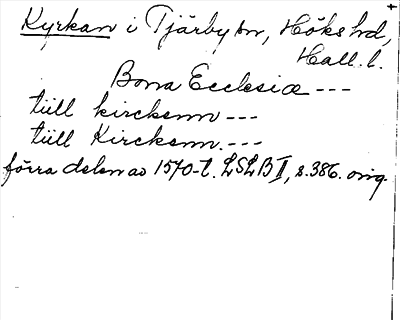 Kyrkan i Tjärby sn, Höks hd,
Hall. l.
Bona Ecclesiæ ---
tüll kircksnn ---
tüll Kircksnn. ---
förra delen av 1570-t. LSLB II, s. 386. orig.